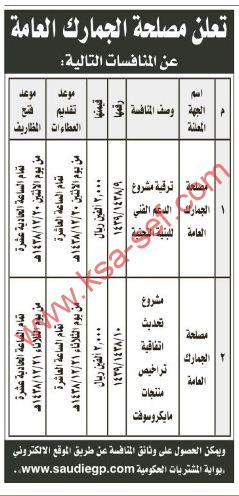 تعلن مصلحة الجمارك العامة
عن المنافسات التالية:
م
اسم الجهة المعلنة
وصف المنافسة
رقمها
قيمتها
موعد تقديم العطاءات
موعد فتح المظاريف
١
مصلحة الجمارك العامة
ترقية مشروع الدعم الفني للبنية التحتية
١٤٣٩/١٤٣٨/٩
٢,٠٠٠ الفين ريال
تمام الساعة العاشرة من يوم الاثنين ١٤٣٨/١٢/٢٠هـ
تمام الساعة الحادية عشرة من يوم الاثنين ١٤٣٨/١٢/٢٠هـ
٢
مصلحة الجمارك العامة
مشروع تحديث اتفاقية تراخيص منتجات مايكروسوفت
١٤٣٩/١٤٣٨/١٠
٢,٠٠٠ الفين ريال
تمام الساعة العاشرة من يوم الثلاثاء ١٤٣٨/١٢/٢١هـ
تمام الساعة الحادية عشرة من يوم الثلاثاء ١٤٣٨/١٢/٢١هـ
ويمكن الحصول على وثائق المنافسة عن طريق الموقع الالكتروني
لبوابة المشتريات الحكومية www.saudiegp.com
www.ksa-sef.com